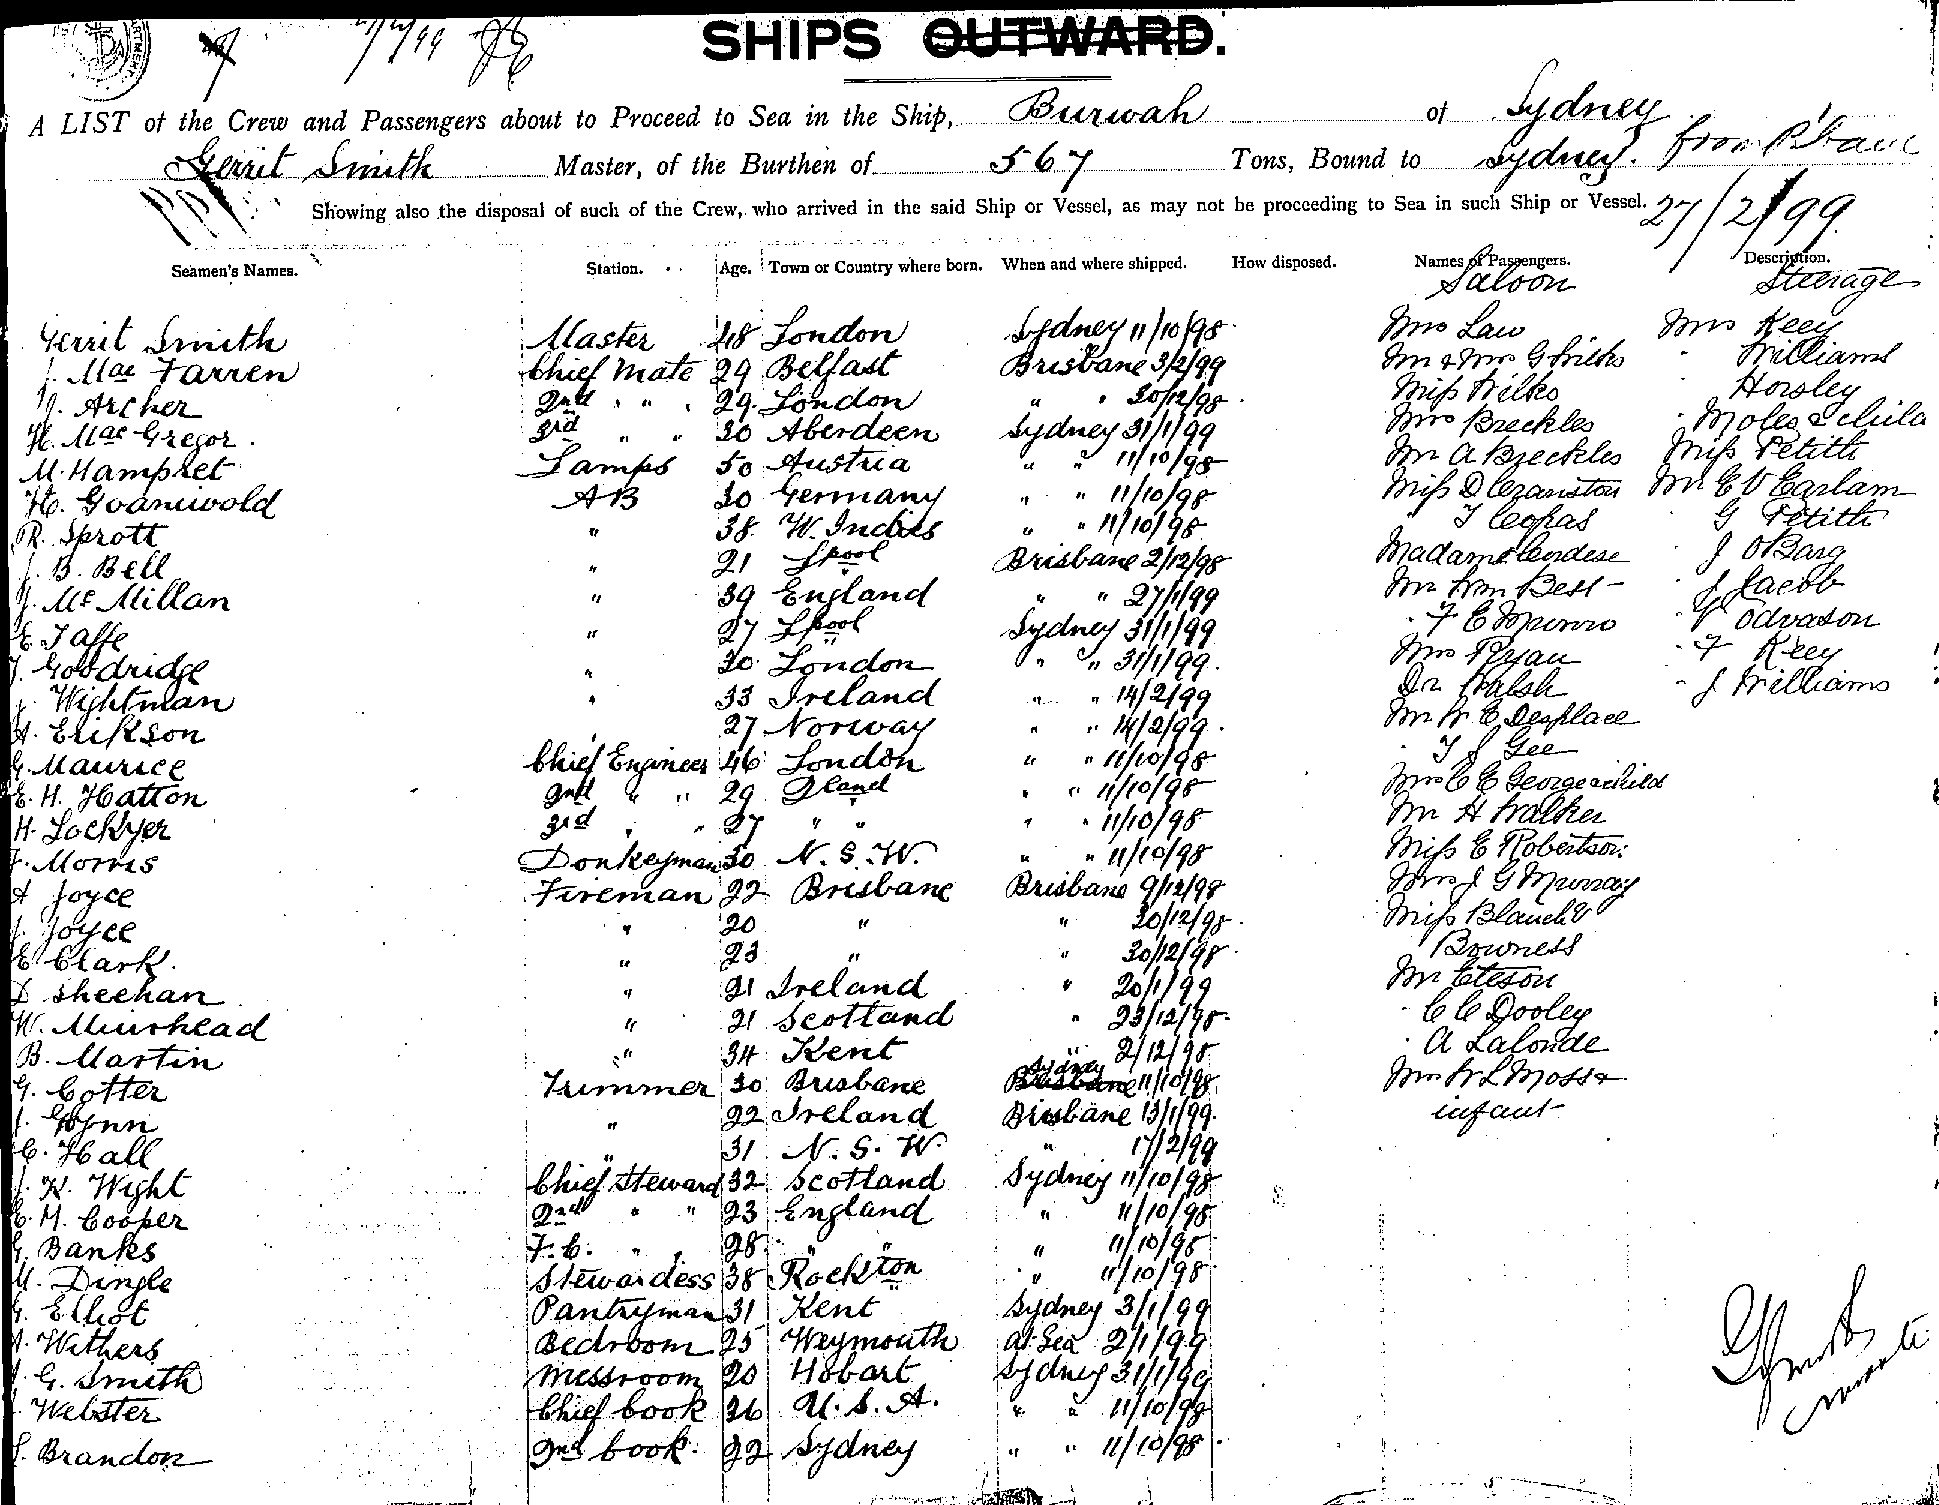 27/2/99
SHIPS OUTWARD.
A LIST of the Crew and Passengers about to Proceed to Sea in the Ship, Burwah of Sydney
Gerrit Smith Master, of the Burthen of 567 Tons, Bound to Sydney. from B'bane
Showing also the disposal of such of the Crew, who arrived in the said Ship or Vessel, as may not be proceeding to Sea in such Ship or Vessel. 27/2/99.
Seamen's Names. Station. Age. Town or Country where born. When and where shipped. How disposed. Names of Passengers. Description.
Saloon Steerage
Gerrit Smith Master 48 London Sydney 11/10/98 Mrs Law Mrs Keey
J. Mac Farren Chief Mate 29 Belfast Brisbane 3/2/99 Mr & Mrs G Wilks " Williams
J. Archer 2nd " " 29 London " " 30/12/98 Miss Wilks Horsley
H. Mac Gregor. 3rd " " 30 Aberdeen Sydney 31/1/99 Mrs Breckles " Moles & child
M. Hampset Lamps 50 Austria " " 11/10/98 Mr A Breckles Miss Petith
H. Goaniwold AB 30 Germany " " 11/10/98 Miss D Cranston Mr E V Earlam
R. Sprott " 38 W. Indies " " 11/10/98 T Copas G Petith
J. B. Bell " 21 Lpool Brisbane 2/12/98 Madame J OBarg
J. Mc Millan " 39 England " " 27/1/99 Mr Wm Best " J Jacob
E. Jaffe " 27 Lpool Sydney 31/1/99 " F E Munro " V Odvason
J. Goodridge " 30 London " " 31/1/99. Mrs Ryan " F Keey
J. Wightman " 33 Ireland " " 14/2/99 Dr Walsh " J Williams
A. Erikson 27 Norway " " 14/2/99. Mr W E Desplace
G. Maurice Chief Engineer 46 London " " 11/10/98 " T J Gee
E. H. Hatton 2nd " " 29 Qland " " 11/10/98 Mrs C E George & child
H. Lockyer 3rd " " 27 " " " " 11/10/98 Mr H Walker
F. Morris Donkeyman 30 N. S. W. " " 11/10/98 Miss E Robertson
A Joyce Fireman 22 Brisbane Brisbane 9/12/98 Mrs J G Murray
J. Joyce " 20 " " 30/12/98. Miss Blanch V
E Clark. " 23 " " 30/12/98. Bowness
D Sheehan " 21 Ireland " 20/1/99 Mr Eteson
W. Muirhead " 21 Scotland " 23/12/98. " C C Dooley
B. Martin " 34 Kent " 2/12/98 " A Lalonde
G. Cotter Trimmer 30 Brisbane Sydney Brisbane 11/10/98 Mrs W L Moss &
J. Gynn " 22 Ireland Brisbane 13/1/99. infant
C. Hall " 31 N. S. W. " 17/2/99
J. K. Wight Chief Steward 32 Scotland Sydney 11/10/98
E. M. Cooper 2nd " " 23 England " 11/10/98
G. Banks F. C. " " 28 " " " 11/10/98
M. Dingle Stewardess 38 Rockston " 11/10/98
G. Elliot Pantryman 31 Kent Sydney 3/1/99
A. Withers Bedroom 25 Weymouth at Sea 2/1/99
J. G. Smith Messroom 20 Hobart Sydney 31/1/99
J. Webster Chief Cook 36 U. S. A. " " 11/10/98
J. Brandon 2nd Cook. 22 Sydney " " 11/10/98.
GSmith